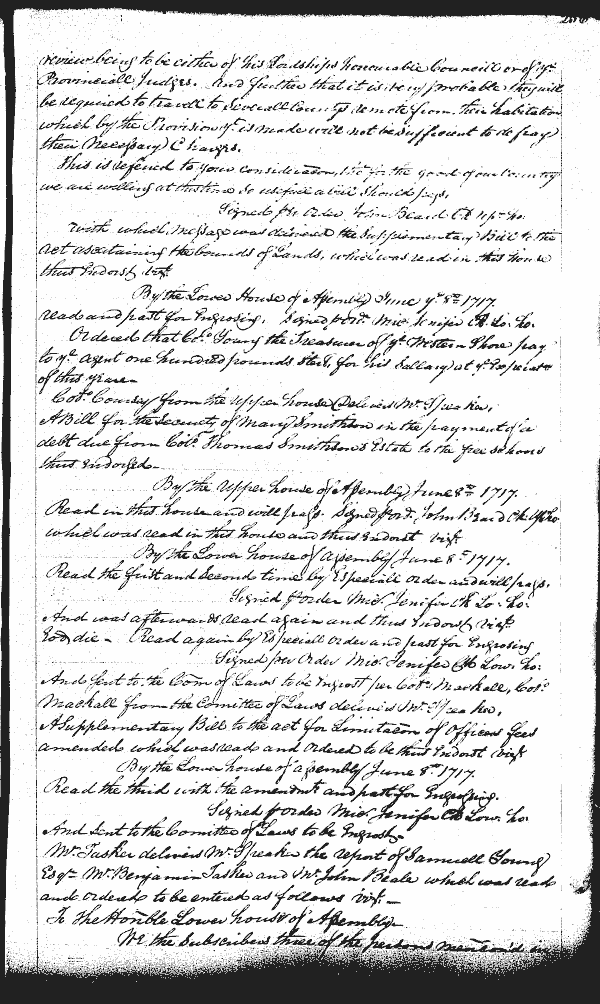 review being to be either of his Lordships honourable Councill or of ye
Provinciall Judges. And further that it is very probable they will
be required to travell to Severall Countys remote from their habitation
which by the Provision yt is made will not be sufficient to defray
their Necessary Charges.
This is referred to your consideration, for the good of our Country
we are willing at this time so usefull a bill should pass.
Signed pr Order John Beard Cl up ho.
With which Message was delivered the Supplementary Bill to the
act ascertaining the bounds of Lands, which was read in this house
thus Endorst vizt
By the Lower House of Assembly June ye 8th 1717.
read and past for Engrosing. Signed pr ordr Mic: Jenifer Cl Lo. ho.
Ordered that Colo Young the Treasurer of ye Western Shore pay
to ye agent one hundred pounds sterl. for his Sallary at ye Expiration
of this year
Colo Coursey from the upper house Delivers Mr Speaker,
A Bill for the Security of Mary Smithson in the payment of a
debt due from Colo Thomas Smithson's Estate to the free schools
thus endorsed
By the Upper house of Assembly June 8th 1717.
Read in this house and will pass. Signed pr ordr John Beard Cl. up ho
which was read in this house and thus Endorst vizt
By the Lower house of assembly June 8th 1717.
Read the first and Second time by Especiall order and will pass.
Signed pr order Mic: Jenifer Cl Lo: ho:
And was afterwards read again and thus Endorst vizt
Eod. die - Read again by Especiall order and past for Engrosing
Signed per Order Mic: Jenifer Cl Low. ho:
And sent to the Com of Laws to be Engrost per Colo Mackall, Colo
Mackall from the Comittee of Laws delivers Mr Speaker,
A Supplementary Bill to the act for Limitacon of Officers fees
amended which was read and ordered to be thus Endorst vizt
By the Lower house of assembly June 8th 1717.
Read the third with the amendmts and past for Engrossing.
Signed pr order Mic: Jenifer Cl Low. ho.
And Sent to the Comittee of Laws to be Engrost.
Mr Tasker delivers Mr Speaker the report of Samuell Young
Esqr Mr Benjamin Tasker and Mr John Beale which was read
and ordered to be entered as follows vizt
To The Honble Lower house of Assembly
We the Subscribers three of the persons mencond in